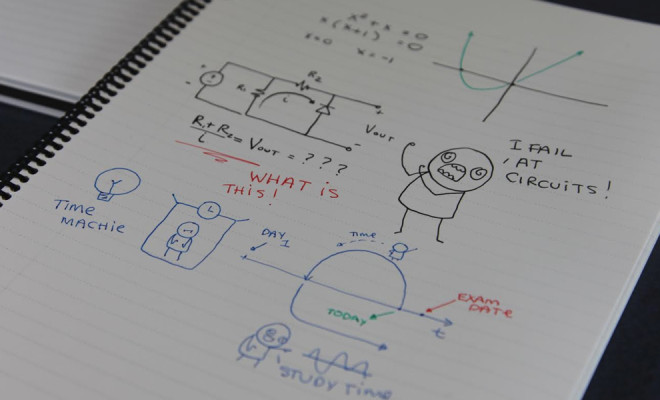 x² + x = 0
x(x+1) = 0
x=0 x=-1
R2
R1
i
+
-
+
-
Vout
R1+R2
i
= Vout = ? ? ?
WHAT IS
THIS!
I FAIL
AT
CIRCUITS!
TIME
MACHIE
DAY
1
TIME
TODAY
EXAM
DATE
t
STUDY TIME